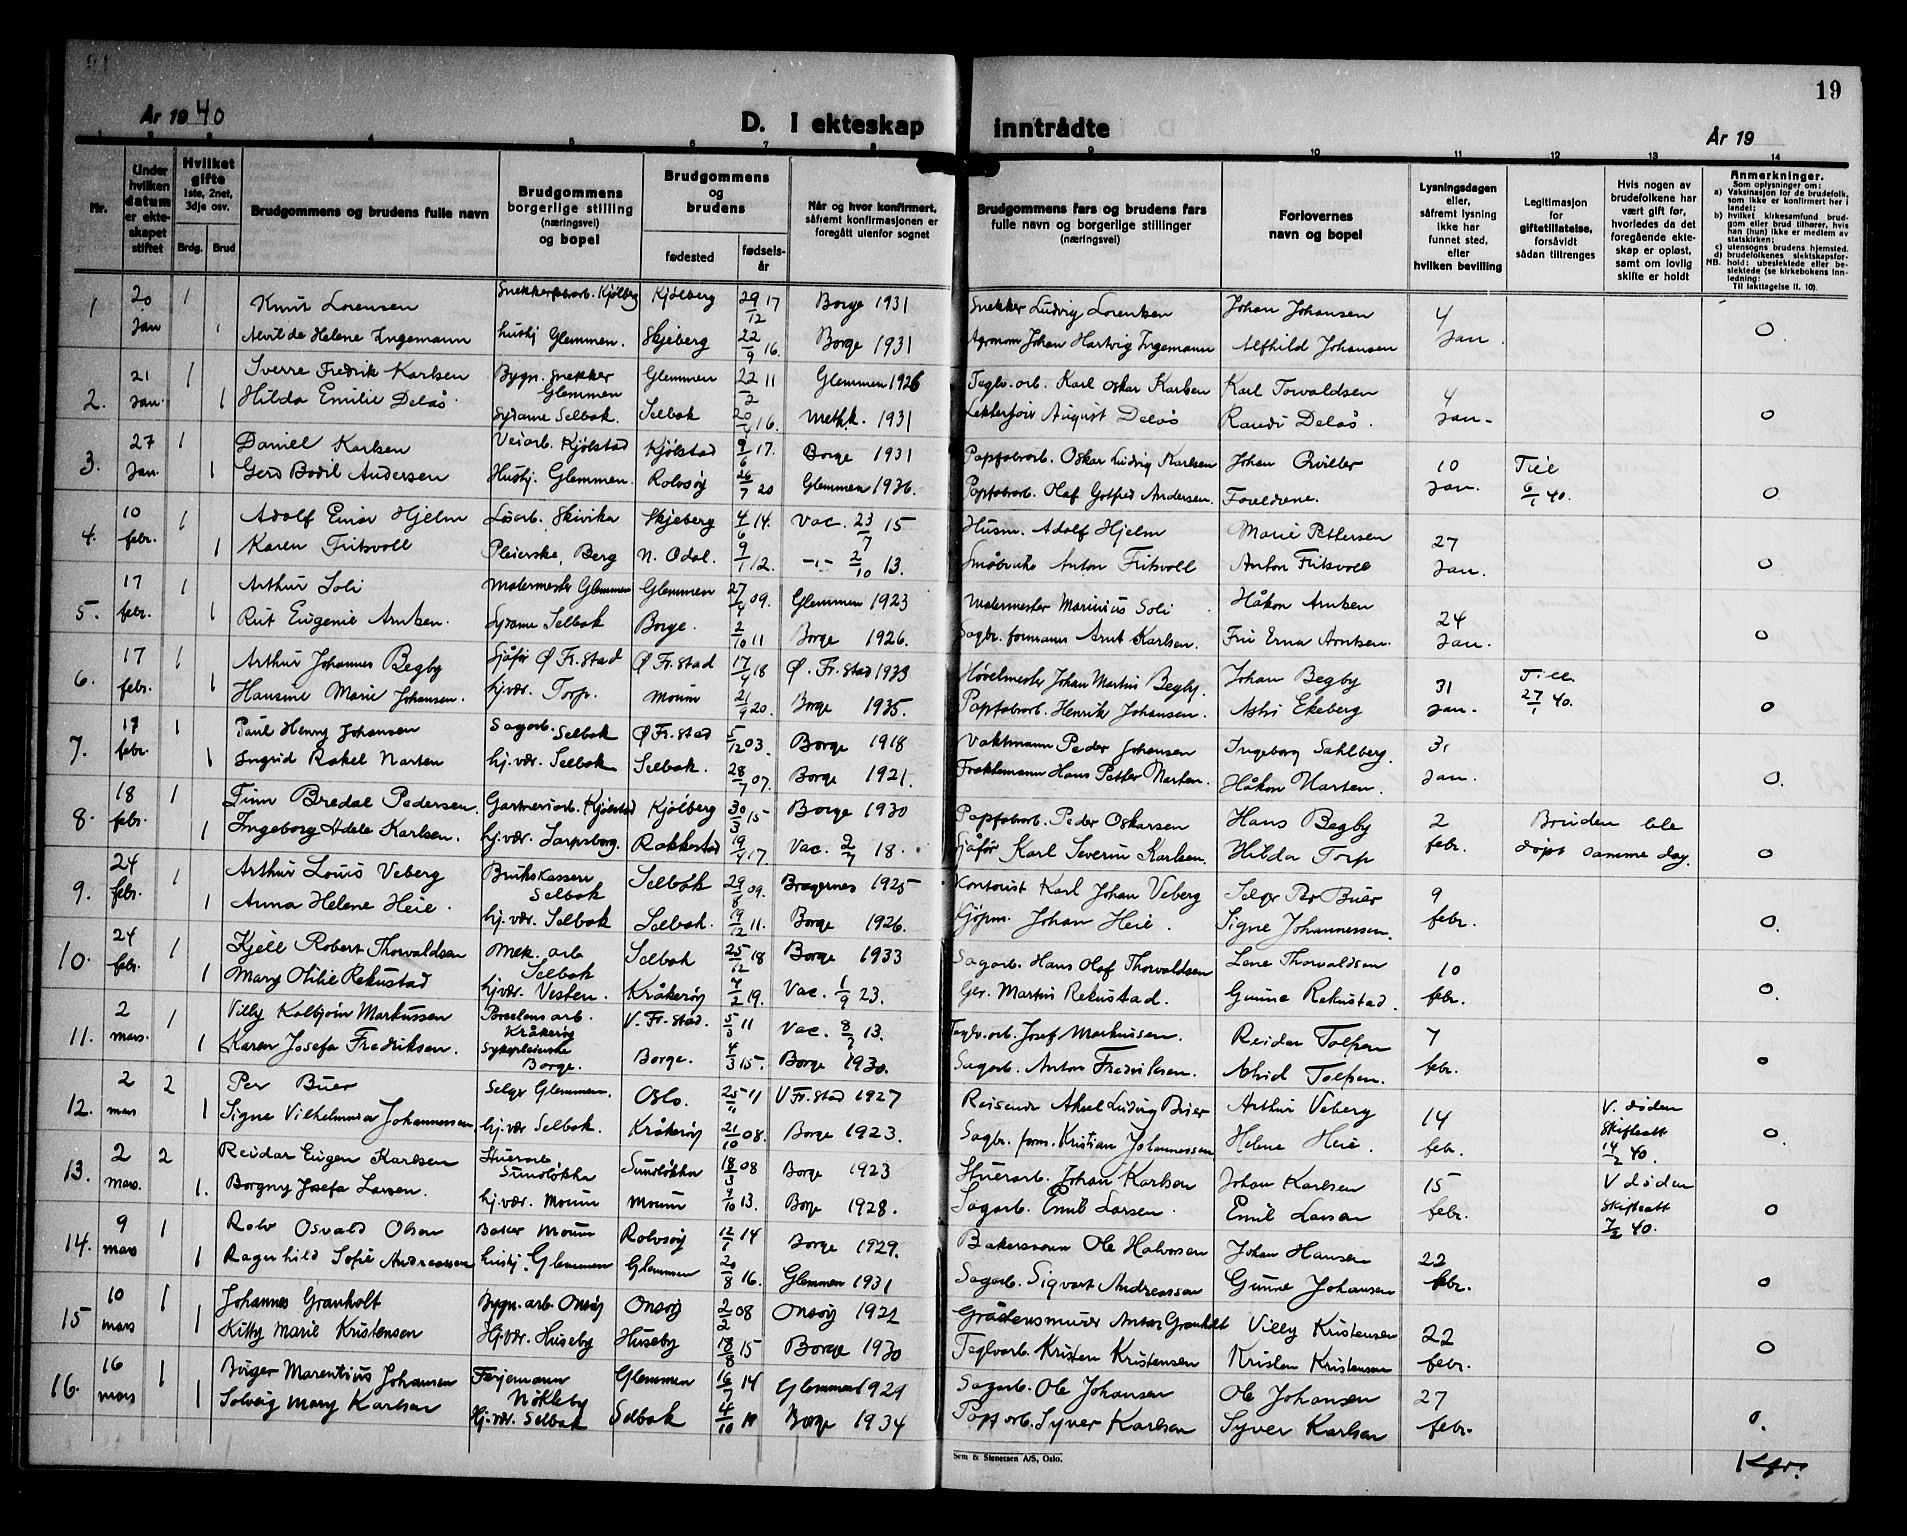 19
År 1940
D. I ekteskap inntrådte
År 19
1 2 3 4 5 6 7 8 9 10 11 12 13 14
Nr.
Under hvilken datum er ekteskapet stiftet
Hvilket gifte 1ste, 2net, 3dje osv.
Brdg. Brud
Brudgommens og brudens fulle navn
Brudgommens borgerlige stilling (næringsvei) og bopel
Brudgommens og brudens
fødested
fødselsår
Når og hvor konfirmert, såfremt konfirmasjonen er foregått utenfor sognet
Brudgommens fars og brudens fars fulle navn og borgerlige stillinger (næringsvei)
Forlovernes navn og bopel
Lysningsdagen eller, såfremt lysning ikke har funnet sted, eller hvilken bevilling
Legitimasjon for giftetillatelse, forsåvidt sådan tiltrenges
Hvis nogen av brudefolkene har vært gift før, hvorledes da det foregående ekteskap er opløst, samt om lovlig skifte er holdt
Anmerkninger.
Som oplysninger om:
a) Vaksinasjon for de brudefolk, som ikke er konfirmert her i landet;
b) hvilket kirkesamfund brudgom eller brud tilhører, hvis han (hun) ikke er medlem av statskirken;
c) utensogns brudens hjemsted.
d) brudefolkenes slektskapsforhold: ubeslektede eller beslektede (se kirkebokens innledning:
NB.
Til iakttagelse II. 10).
1 20 Jan 1 Knut Lorensen Kjølberg Kjølberg 29/12 17 Borge 1931 Snekker Ludvig Lorentsen Johan Johansen 4 Jan.
1 Alvilde Helene Ingemann hushj Glemmen. Skjeberg 22/9 16. Borge 1931 Agronom Johan Hartvig Ingemann Alfhild Johansen 0
2. 21 Jan. 1 Sverre Fredrik Karlsen Bygn. snekker Glemmen Glemmen 22/2 11 Glemmen 1926 Teglv. arb. Karl Oskar Karlsen Karl Torvaldsen 4 Jan.
1 Hilda Emilie Delås Sydame Selbak. Selbak 16. Methk. 1931 August Delås Randi Delås. 0
3. 27 Jan. 1 Daniel Karlsen Veiarb. Kjølstad Kjølstad 9/6 17. Borge 1931 Papfabrarb. Oskar Ludvig Karlsen Johan 10 Jan.
1 Gerd Bodil Andersen Hushj. Glemmen. Rolvsøy 26/7 20 Glemmen 1936. Papfabarb. Olaf Gotfred Andersen. Foreldrene. 6/1 40. 0
4. 10 febr. 1 Adolf Einar Hjelm Løsarb. Skivika Skjeberg 4/6 14. Vac. 23/7 15 Husm. Adolf Hjelm Marie Pettersen 27 Jan.
1 Karen Fritsvoll Pleierske, Berg N. Odal. 9/1 12. -"- 2/10 13. Småbruke Anton Fritsvoll Anton Fritsvoll 0
5. 17 febr. 1 Arthur Soli Malermester Glemmen Glemmen 27/4 09. Glemmen 1923 Malermester Marinius Soli Håkon Arntsen 24 Jan.
1 Rut Eugenie Arntsen. Sydame Selbak Borge. 2/10 11 Borge 1926. Sagbr. formann Arnt Karlsen. Fru Erna Arntsen. 0
6. 17 febr. 1 Arthur Johannes Begby Sjåfør Ø Fr.stad Ø Fr. stad 17/4 18 Ø. Fr. stad 1933 Høvelmester Johan Martin Begby. Johan Begby 31 Jan.
1 Hansine Marie Johansen. hj.vær. Torp. Moum 21/9 20. Borge 1935. Papfabarb. Henrik Johansen. Astri Ekeberg 27/1 40. 0
7. 17 febr. 1 Paul Henry Johansen Sagarb. Selbak Ø Fr. stad 5/12 03. Borge 1918 Vaktmann Peder Johansen Ingeborg Sahlberg. 31 Jan.
1 Ingrid Rakel Narten hj.vær. Selbak Selbak. 28/7 07. Borge 1921. Hans Petter Narten. Håkon Narten. 0.
8. 18 febr. 1 Finn Bredal Pedersen. Gartneriarb. Kjølstad Kjølberg 30/3 15 Borge 1930 Papfabarb. Peder Oskarsen Hans Begby 2 febr. Bruden ble
1 Ingeborg Adele Karlsen. hj.vær. Sarpsborg. Rakkestad 19/4 17 Vac. 2/7 18. Sjåfør Karl Severin Karlsen. Hilda Torp døpt samme dag. 0
9. 24 febr. 1 Arthur Louis Veberg Brukskasserer Selbak Selbak 29/8 09. Bragernes 1925 Kontorist Karl Johan Veberg Selger Per Buer 9 febr.
1 Anna Helene Heie. hj.vær. Selbak Selbak. 19/12 11. Borge 1926. Kjøpm. Johan Heie. Signe Johannessen. 0.
10. 24 febr. 1 Kjell Robert Thorvaldsen Mek. arb Selbak Selbak 25/12 18 Borge 1933 Sagarb. Hans Olaf Thorvaldsen Lene Thorvaldsen 10 febr.
1 Mary Otilie Rekustad hj.vær. Vesten. Kråkerøy 4/2 19. Vac. 1/9 23. Gbr. Martin Rekustad. Gunne Rekustad. 0.
11. 2 mars. 1 Villy Kolbjørn Markussen Porselensarb. Kråkerøy V. Fr. stad. 5/3 11 Vac. 8/7 13. Teglv.arb. Josef Markussen. Reidar Tolfsen 7 febr.
1 Karen Josefa Fredriksen. Sykepleierske Borge. Borge. 4/3 15. Borge 1930. Sagarb. Anton Fredriksen. Astrid Tolfsen. 0
12. 2 mars 2 Per Buer Selger Glemmen. Oslo. 25/11 11 V Fr. stad 1927 Reisende Aksel Ludvig Buer Arthur Veberg 14 febr. V. døden
1 Signe Vilhelmina Johannessen hj.vær Selbak. Kråkerøy 21/10 08. Borge 1923. Sagbr. form. Kristian Johannessen Helene Heie. skifteatt 14/2 40. 0.
13. 2 mars. 2 Reidar Eugen Karlsen Stuerarb. Sundløkka Sundløkka 18/3 08 Borge 1923 Stuerarb. Johan Karlsen Johan Karlsen 15 febr. V døden
1. Borgny Josefa Larsen. hj.vær. Moum Moum 4/10 13. Borge 1928. Sagarb. Emil Larsen. Emil Larsen skifteatt 7/2 40. 0
14. 9 mars 1 Rolv Osvald Olsen Baker Moum Rolvsøy 12/7 14 Borge 1929. Bakersvenn Ole Halvorsen Johan Hansen 22 febr.
1 Ragnhild Sofie Andreassen hushj. Glemmen Glemmen 20/8 16. Glemmen 1931 Sagarb. Sigvart Andreassen Gunne Johansen 0
15 10 mars 1 Johannes Granholt Bygn. arb. Onsøy Onsøy 2/2 08 Onsøy 1922 Gråstensmurer Anton Granholt Villy Kristensen 22 febr.
1 Kitty Marie Kristensen Hj.vær. Huseby Huseby 18/8 15 Borge 1930 Teglvarb. Kristen Kristensen Kristen Kristensen 0
16. 16 mars 1 Birger Marentius Johansen Ferjemann Nøkleby Glemmen 16/7 14 Glemmen 1929 Sagarb. Ole Johansen Ole Johansen 27 febr.
1 Solveig Mary Karlsen Hj.vær. Selbak Selbak 4/10 Borge 1934 Papf arb. Syver Karlsen Syver Karlsen 0.
Sem & Stenersen A/S, Oslo.